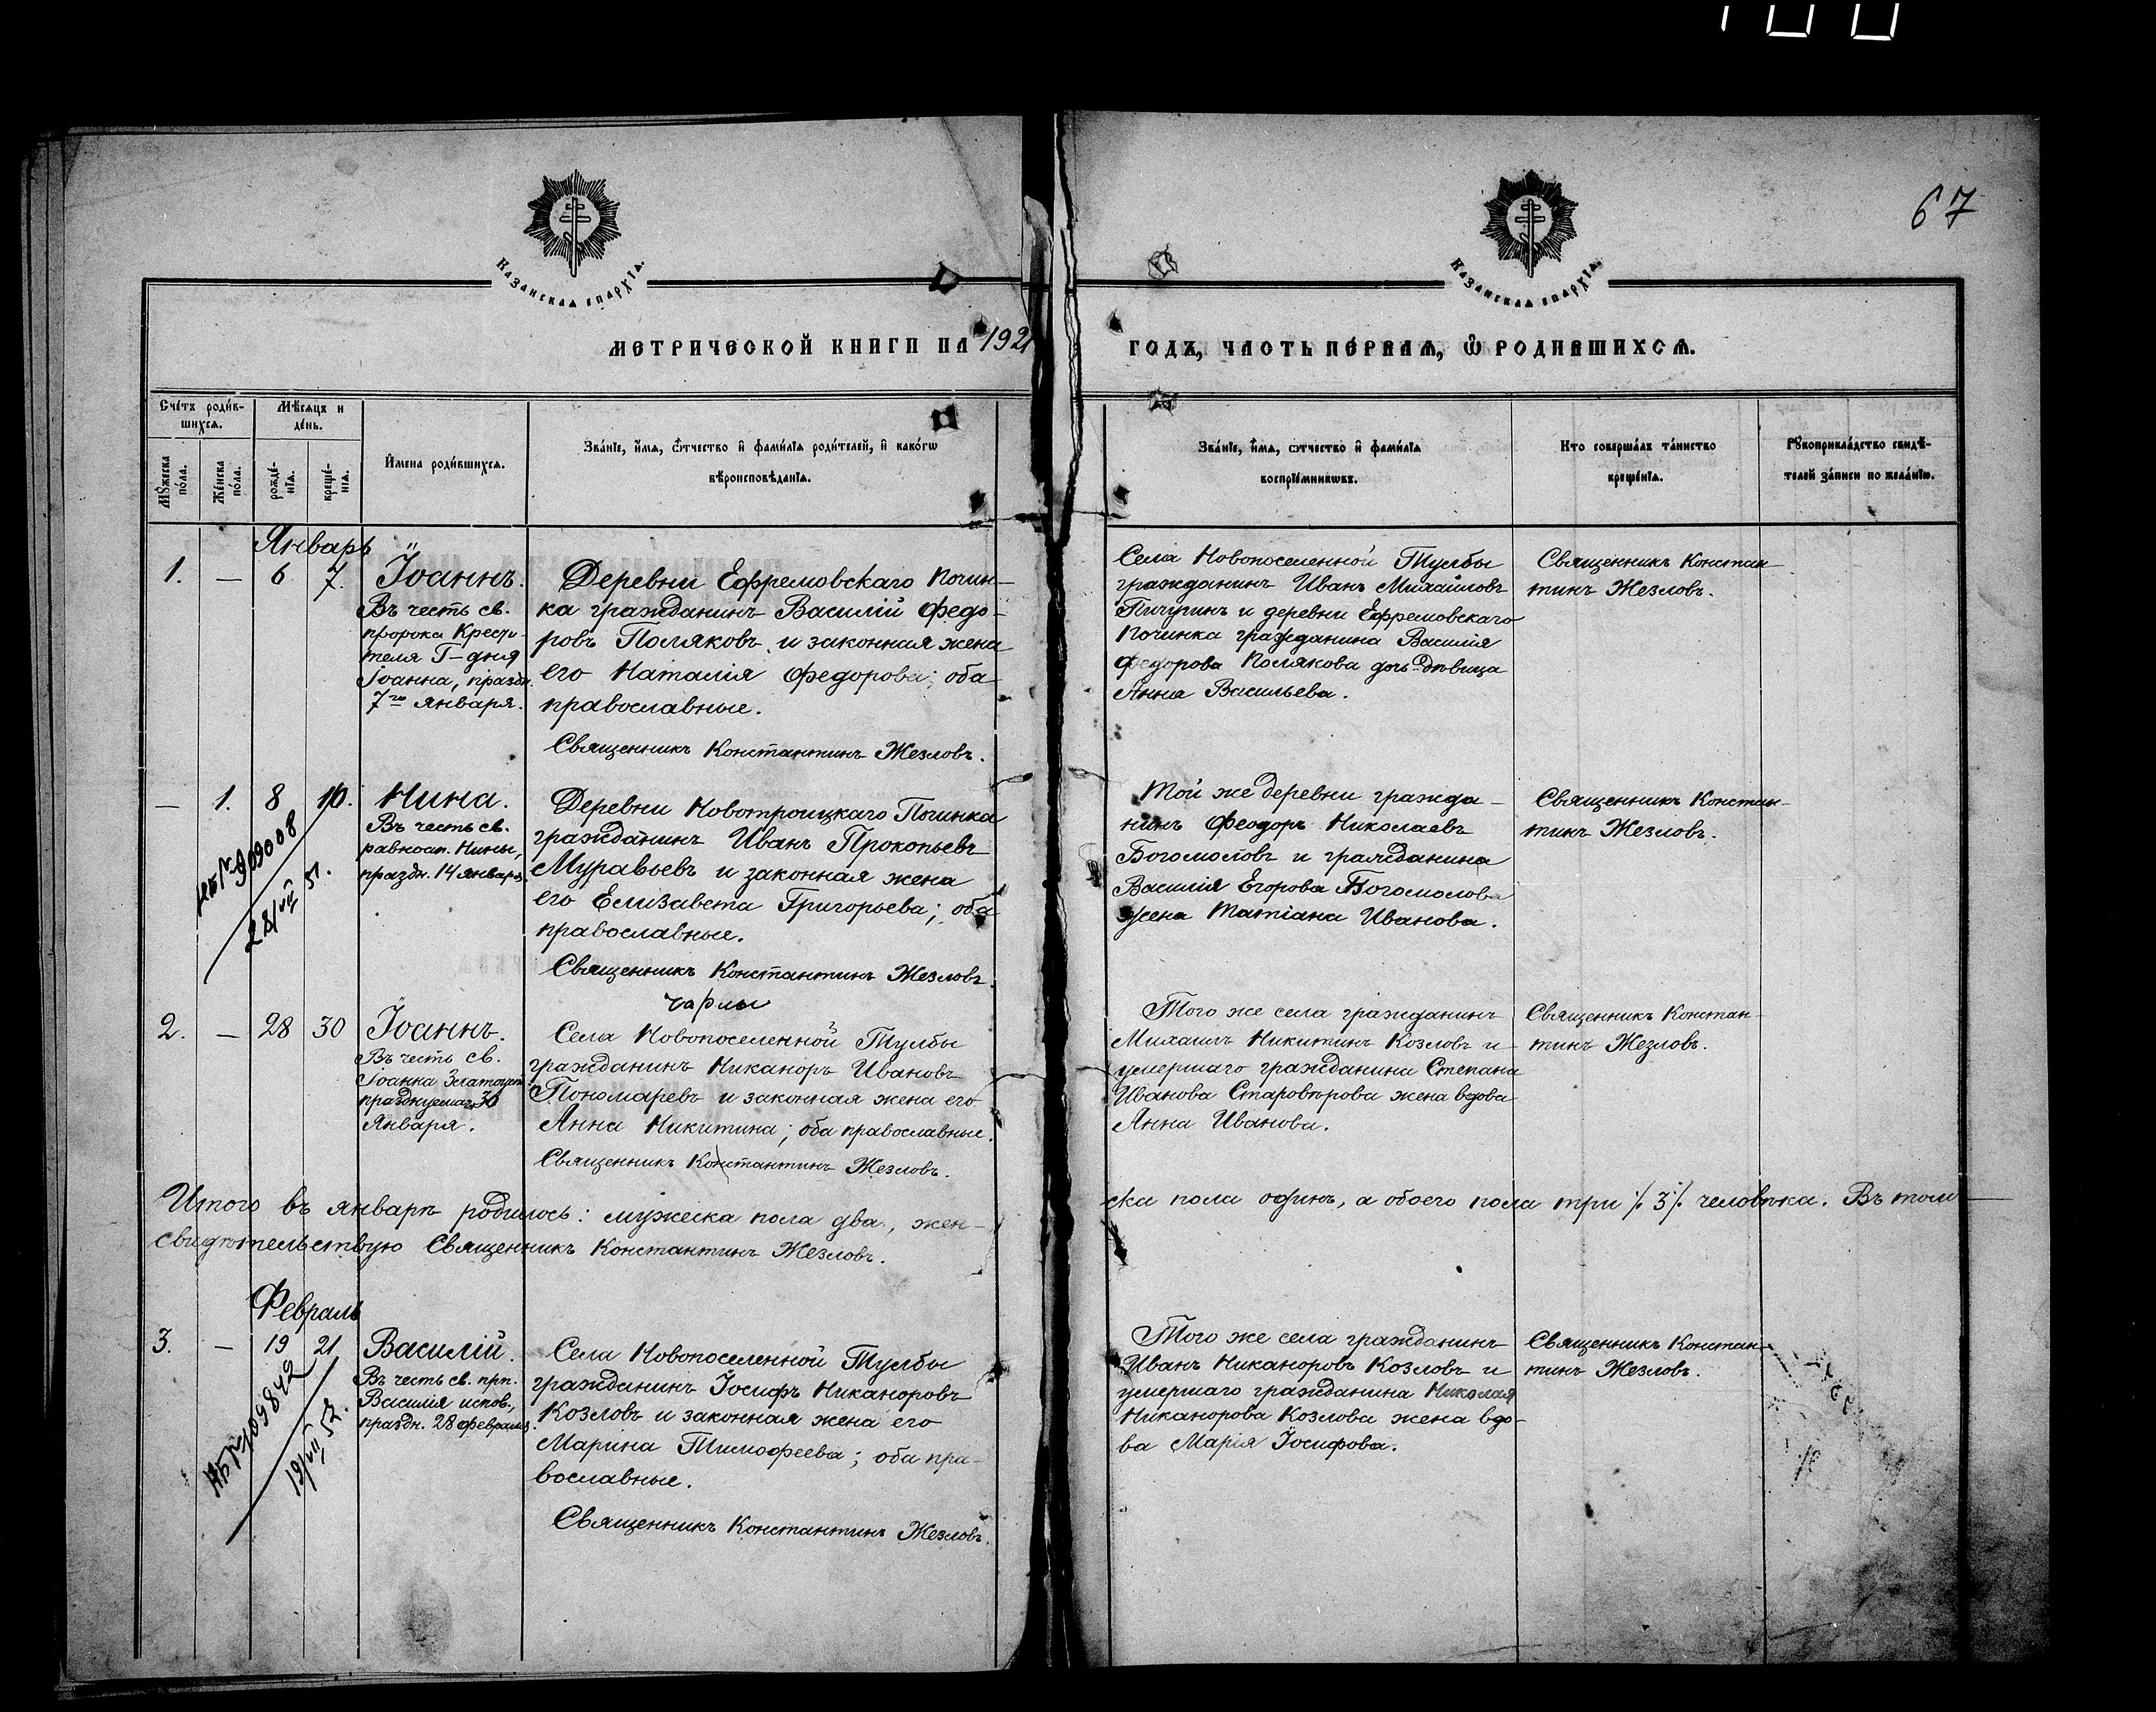 67
Казанская епархїа.
Казанская епархїа.
МЕТРИЧЕСКОЙ КНИГИ НА 1921
ГОДЪ, ЧАСТЬ ПЕРВАЯ, Ѽ РОДИВШИХСЯ.
Счётъ роди́в-
шихся.
Мѣ́сяцъ и
де́нь.
Мꙋ́жеска
по́ла.
Же́нска
по́ла.
рожде́-
нїя.
креще́-
нїя.
И́мена роди́вшихся.
Зва́нїе, и҆́мя, ѻ҆́тчество и҆ фами́лїя роди́телей, и҆ како́гѡ
вѣроисповѣ́данїя.
Зва́нїе, и҆́мя, ѻ҆́тчество и҆ фами́лїя
воспрїе́мникѡвъ.
Кто соверша́лъ та́инство
креще́нїя.
Рꙋкоприкла́дство свидѣ́-
телей за́писи по жела́нїю.
Январь
1. — 6 7. Іоаннъ.
Въ честь св.
пророка Крести-
теля Г-дня
Іоанна, праздн.
7го января.
Деревни Ефремовскаго Почин-
ка гражданинъ Василій Федо-
ровъ Поляковъ и законная жена
его Наталія Федорова; оба
православные.
Священникъ Константинъ Жезловъ.
Села Новопоселенной Тулбы
гражданинъ Иванъ Михаиловъ
Пичугинъ и деревни Ефремовскаго
Починка гражданина Василія
Федорова Полякова дочь-дѣвица
Анна Васильева.
Священникъ Констан-
тинъ Жезловъ.
— 1. 8 10. Нина.
Въ честь св.
равноап. Нины,
праздн. 14 января.
28/VII 51.
Деревни Новотроицкаго Починка
гражданинъ Иванъ Прокопьевъ
Муравьевъ и законная жена
его Елизавета Григорьева; оба
православные.
Священникъ Константинъ Жезловъ.
Той же деревни гражда-
нинъ Феодоръ Николаевъ
Богомоловъ и гражданина
Василія Егорова Богомолова
жена Татіана Иванова.
Священникъ Констан-
тинъ Жезловъ.
2. — 28 30 Іоаннъ.
Въ честь св.
Іоанна Златоуст.
празднуемаго 30
Января.
Села Новопоселенной Тулбы
гражданинъ Никаноръ Ивановъ
Пономаревъ и законная жена его
Анна Никитина; оба православные.
Священникъ Константинъ Жезловъ.
Того же села гражданинъ
Михаилъ Никитинъ Козловъ и
умершаго гражданина Степана
Иванова Старовѣрова жена вдова
Анна Иванова.
Священникъ Констан-
тинъ Жезловъ.
Итого въ январѣ родилось: мужеска пола два, жен-
ска пола одинъ, а обоего пола три ٪ 3 ٪ человѣка. Въ томъ
свидѣтельствую Священникъ Константинъ Жезловъ.
Февраль
3. — 19 21 Василій.
Въ честь св. прп.
Василія испов.,
праздн. 28 февраля.
19/VII 52.
Села Новопоселенной Тулбы
гражданинъ Іосифъ Никаноровъ
Козловъ и законная жена его
Марина Тимофеева; оба пра-
вославные.
Священникъ Константинъ Жезловъ.
Того же села гражданинъ
Иванъ Никаноровъ Козловъ и
умершаго гражданина Николая
Никанорова Козлова жена вдо-
ва Марія Іосифова.
Священникъ Констан-
тинъ Жезловъ.